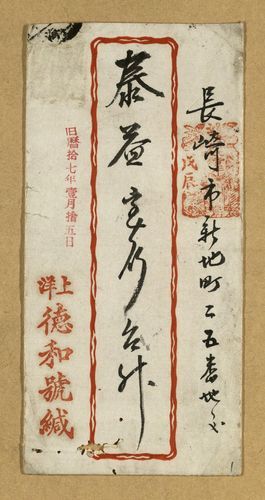 長崎市新地町二五番地
戊辰
泰益寶行台升
旧暦拾七年壹月拾五日
上洋
德和號緘